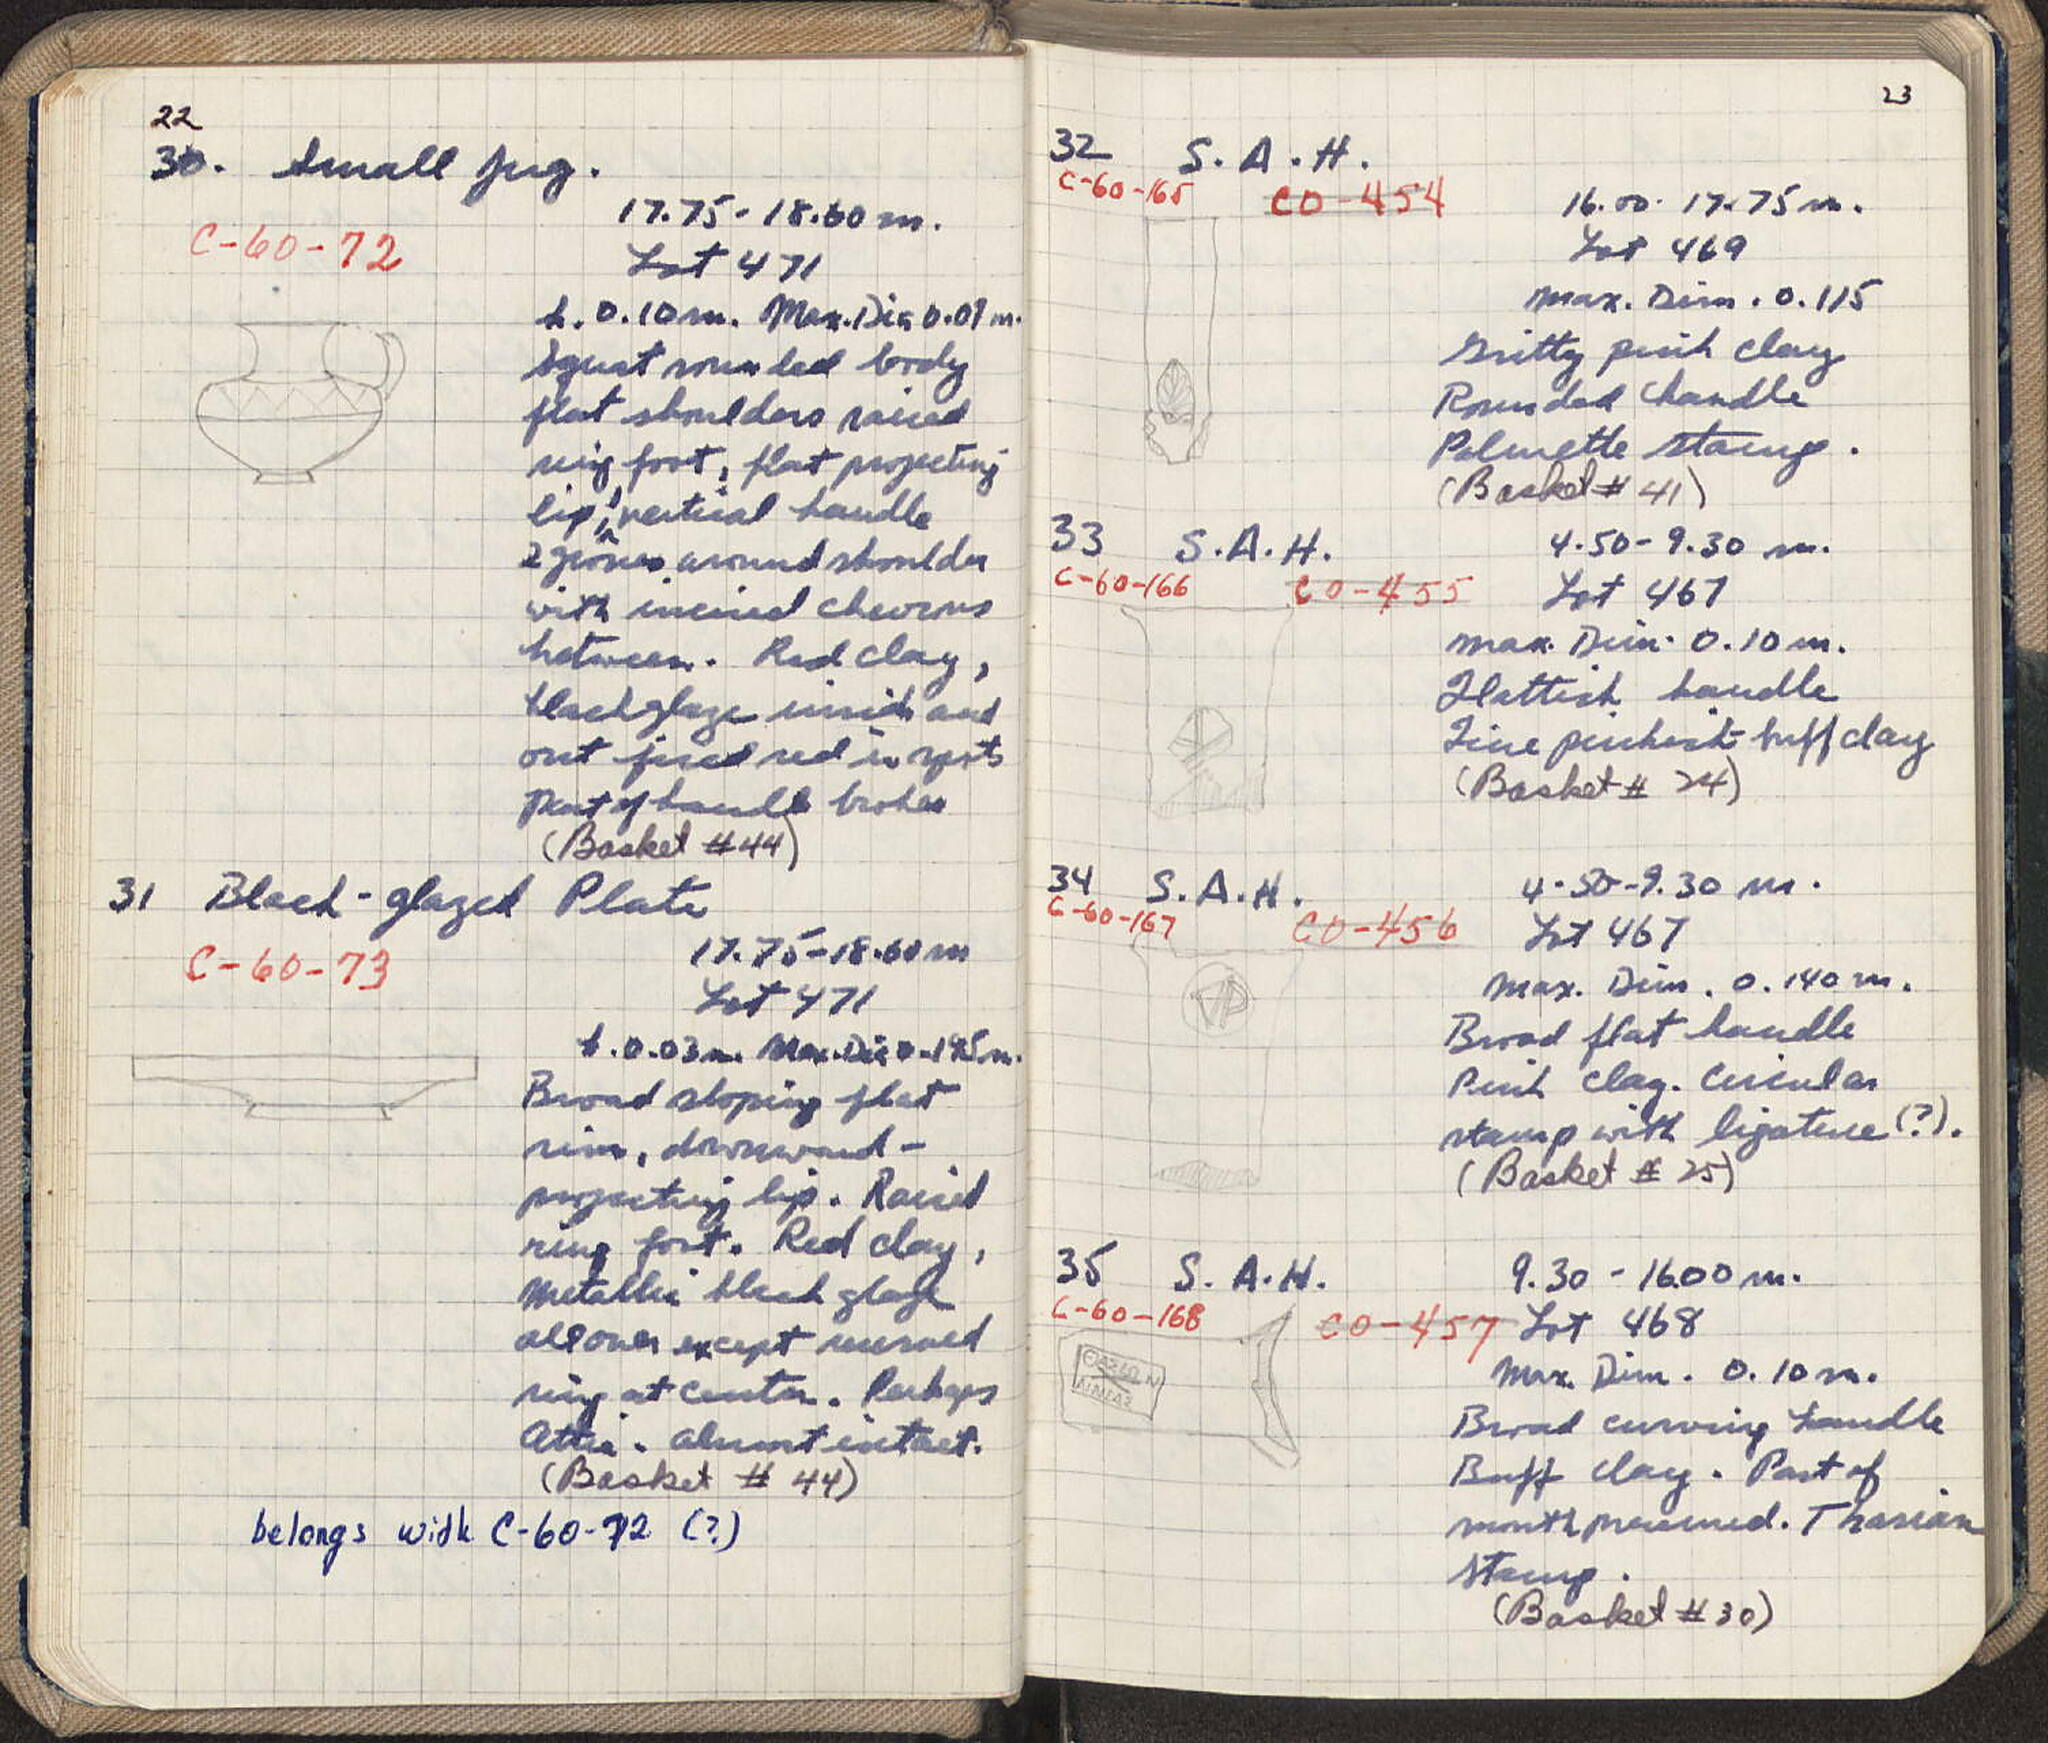 22
30. Small jug.
17.75-18.60 m.
C-60-72
Lot 471
h. 0.10 m. Max. Dia 0.09 m.
Squat rounded body
flat shoulders raised
ring foot, flat projecting
lip, vertical handle
2 grooves around shoulder
with incised chevrons
between. Red clay,
black glaze inside and
out fired red in spots
Part of handle broken
(Basket #44)
31 Black-glazed Plate
17.75-18.60 m
C-60-73
Lot 471
h. 0.03 m. Max. Dia 0.195 m.
Broad sloping flat
rim, downward-
projecting lip. Raised
ring foot. Red clay,
Metallic black glaze
all over except reserved
ring at center. Perhaps
Attic. Almost intact.
(Basket # 44)
belongs with C-60-72 (?)
23
32 S.A.H.
C-60-165 CO-454
16.00-17.75 m.
Lot 469
Max. Dim. 0.115
Gritty pink clay
Rounded handle
Palmette stamp.
(Basket # 41)
33 S.A.H.
4.50-9.30 m.
C-60-166 CO-455
Lot 467
Max. Dim. 0.10 m.
Flattish handle
Fine pinkish buff clay
(Basket # 24)
34 S.A.H.
4.50-9.30 m.
C-60-167 CO-456
Lot 467
Max. Dim. 0.140 m.
Broad flat handle
Pink clay. Circular
stamp with ligature (?).
(Basket # 25)
35 S.A.H.
9.30-16.00 m.
C-60-168 CO-457
Lot 468
Max. Dim. 0.10 m.
Broad curving handle
Buff clay. Part of
mouth preserved. Thasian
Stamp.
(Basket #30)